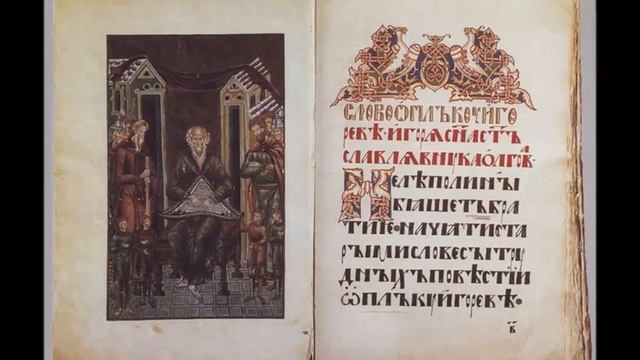 СЛОВОѠПЛЪКУИГО
РЕВѢ·ИГОРЯСЫНАСТЪ
СЛАВЛЯВНУКАОЛГОВА
НЕЛѢПОЛИНЫ
БЯШЕТЪБРА
ТИЕ·НАЧАТИСТА
РЫМИСЛОВЕСЫТРУ
ДНЫХЪПОВѢСТIИ
ѠПЛЪКУИГОРЕВѢ·
В